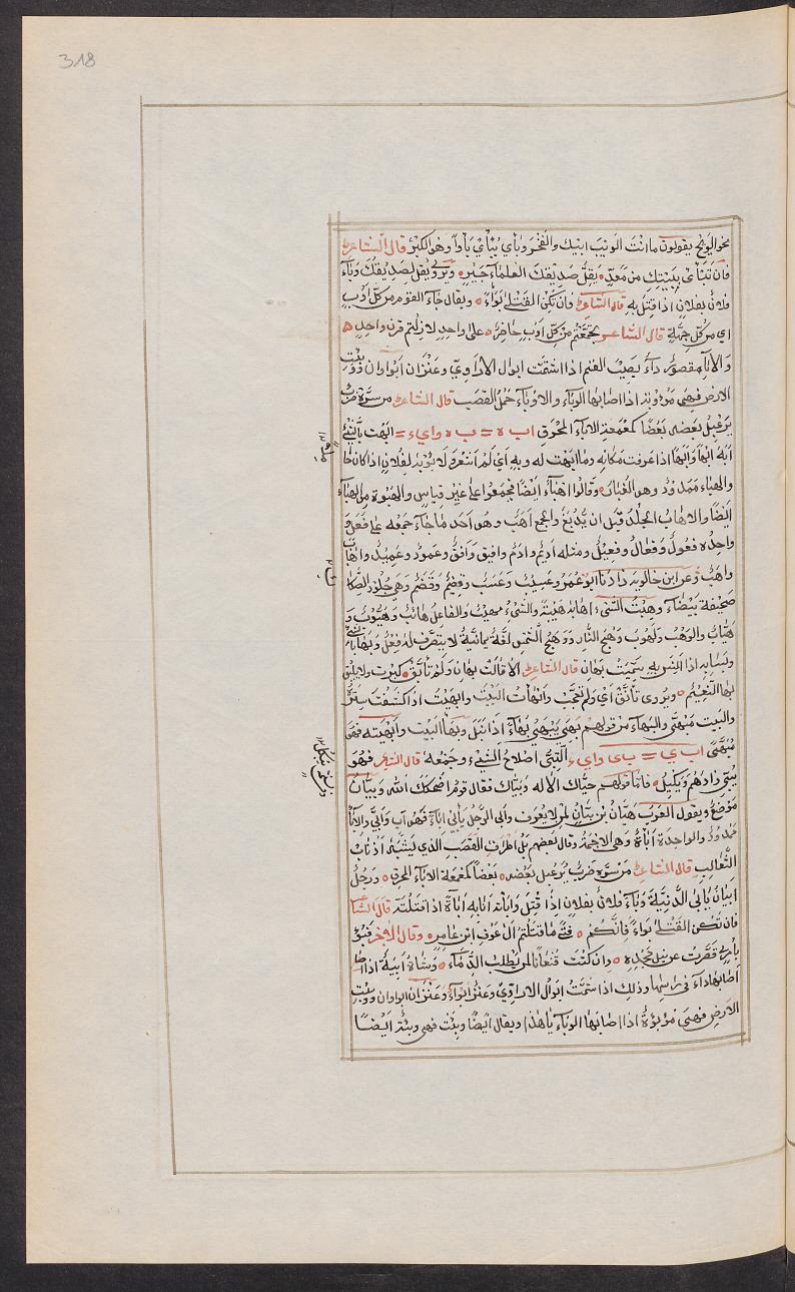 318
نحو الويح يقولون ما انت الوتب ابتك والفخر وبأى يبأى بأوا وهو الكبر قال الشاعر
فان تبأى ببيتك من معد يقل صديقك العلماء جير ويروى يقل لصديقك وباء
فلان بفلان اذا قتل به قال الشاعر فان تكن القتلى بواء ويقال جاء القوم من كل أوب
اي من كل جهة قال الشاعر تجمعتم من كل اوب حاضر على واحد لا زلتم قرن واحد
والأبا مقصور داء يصيب الغنم اذا اشتمت ابوال الاراوي وعنزان ابوان وبئت
الارض فهي موبوئة اذا اصابها الوباء والاوباء حمل القصب قال الشاعر من سره ضرب
يرعبل بعضه بعضا كمعمعة الاباء المحرق اب ه = ب ه واي ء = ابهت بالشيء
ابه ابها وابها اذا عرفت مكانه وما ابهت له وبه اي لم اشعر لا يوبه لفلان اذا كان خا
والهباء ممدود وهو الغبار وقالوا اهباء ايضا فجمعوا على غير قياس والهبوة من الهباء
ايضا والاهاب الجلد قبل ان يدبغ والجمع اهب وهو احد ما جاء جمعه على فعل و
واحده فعول وفعال وفعيل ومثله اديم وادم وافيق وافق وعمود وعميد واهاب
واهب وعن ابن خالويه زادنا ابو عمر وعسيب وعسب وقضيم وقضم وهي جلود الضكا
صحيفة بيضاء وهبت الشيء اهابه هيبة والشيء مهيب والفاعل هائب وهيوب و
هياب والوهب ولهوب وهج النار ووهج الشمس لغة يمانية لا يتصرف له فعل وبها بالشيء
وبسأ به اذا انس به سميت بهان قال الشاعر الا قالت بهان ولم تأبق كبرت ولا يليق
بها النعيم ويروى تأنق اي ولم تعجب وانهات البيت وابهيت اذا كشفت ستره
والبيت مبهى والبهاء من قولهم بهي يبهى بهاء اذا نبل وبها البيت وابهيته فهو
مبهى اب ي = ب ى واي ء التبيى اصلاح الشيء وجمعه قال الشاعر فهو
يبيى زادهم ويكيل فاما قولهم حياك الاله وبياك فقال قوم اضحكك الله وبيان
موضع ويقول العرب هيان بن بيان لمن لا يعرف وابى الرجل يأبى اباء فهو آب وابي والاباء
ممدود والواحدة اباءة وهي الاجمة وقال بعضهم بل اطراف القصب الذي يشبه اذناب
الثعالب قال الشاعر من سره ضرب يرعبل بعضه بعضا كمعمعة الاباء المحرق ورجل
ابيان يأبى الدنية وباء فلان بفلان اذا قتل واباته ابابه اباءة اذا قتلته قال الشا
فان تكن القتلى بواء فانكم فتى ما قتلتم ال عوف ابن عامر وقال الاخر فبؤ
بامرئ قصرت عن نيل مجده وان كنت قنعانا لمن يطلب الدماء وشاة ابية اذا
اصابها داء في راسها وذلك اذا شمت ابوال الاراوي وعنز ابواء وعنزان ابوادان ووبئت
الارض فهي موبوة اذا اصابها الوباء يا هذا ويقال ايضا وبئت فهي وبئة ايضا